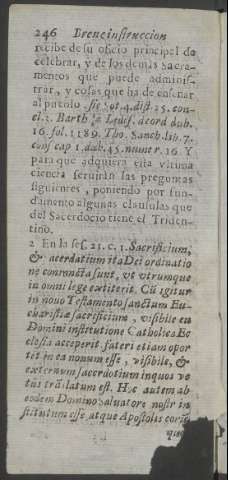 246 Breue instruccion
recibe de su oficio principal de
celebrar, y de los demas Sacra-
mentos que puede adminis-
trar, y cosas que ha de enseñar
al pueblo. sic Sot. 4. dist. 25. con-
cl. 1. Barth. à Ledes. de ord dub.
16. fol. 1189. Tho. Sanch. lib. 7.
conf cap 1. dub. 45. numer. 16. Y
para que adquiera esta vltima
ciencia seruiràn las preguntas
siguientes, poniendo por fun-
damento algunas clausulas que
del Sacerdocio tiene el Triden-
tino.
2 En la ses. 23. c. 1. Sacrificium,
& acerdatium ita Dei ordinatio
ne coniuncta sunt, vt vtrumque
in omni lege extiterit. Cū igitur
in nouo Testamento sanctum Eu-
charistiæ sacrificium, visibile ex
Domini institutione Catholica Ec
clesia acceperit. fateri etiam opor
tet in ea nonum esse, visibile, &
externum sacerdotium in quod ve
tus trāslatum est. Hoc autem ab
eodem Domino Saluatore nostr in
stitutum esse atque Apostolis eorūq